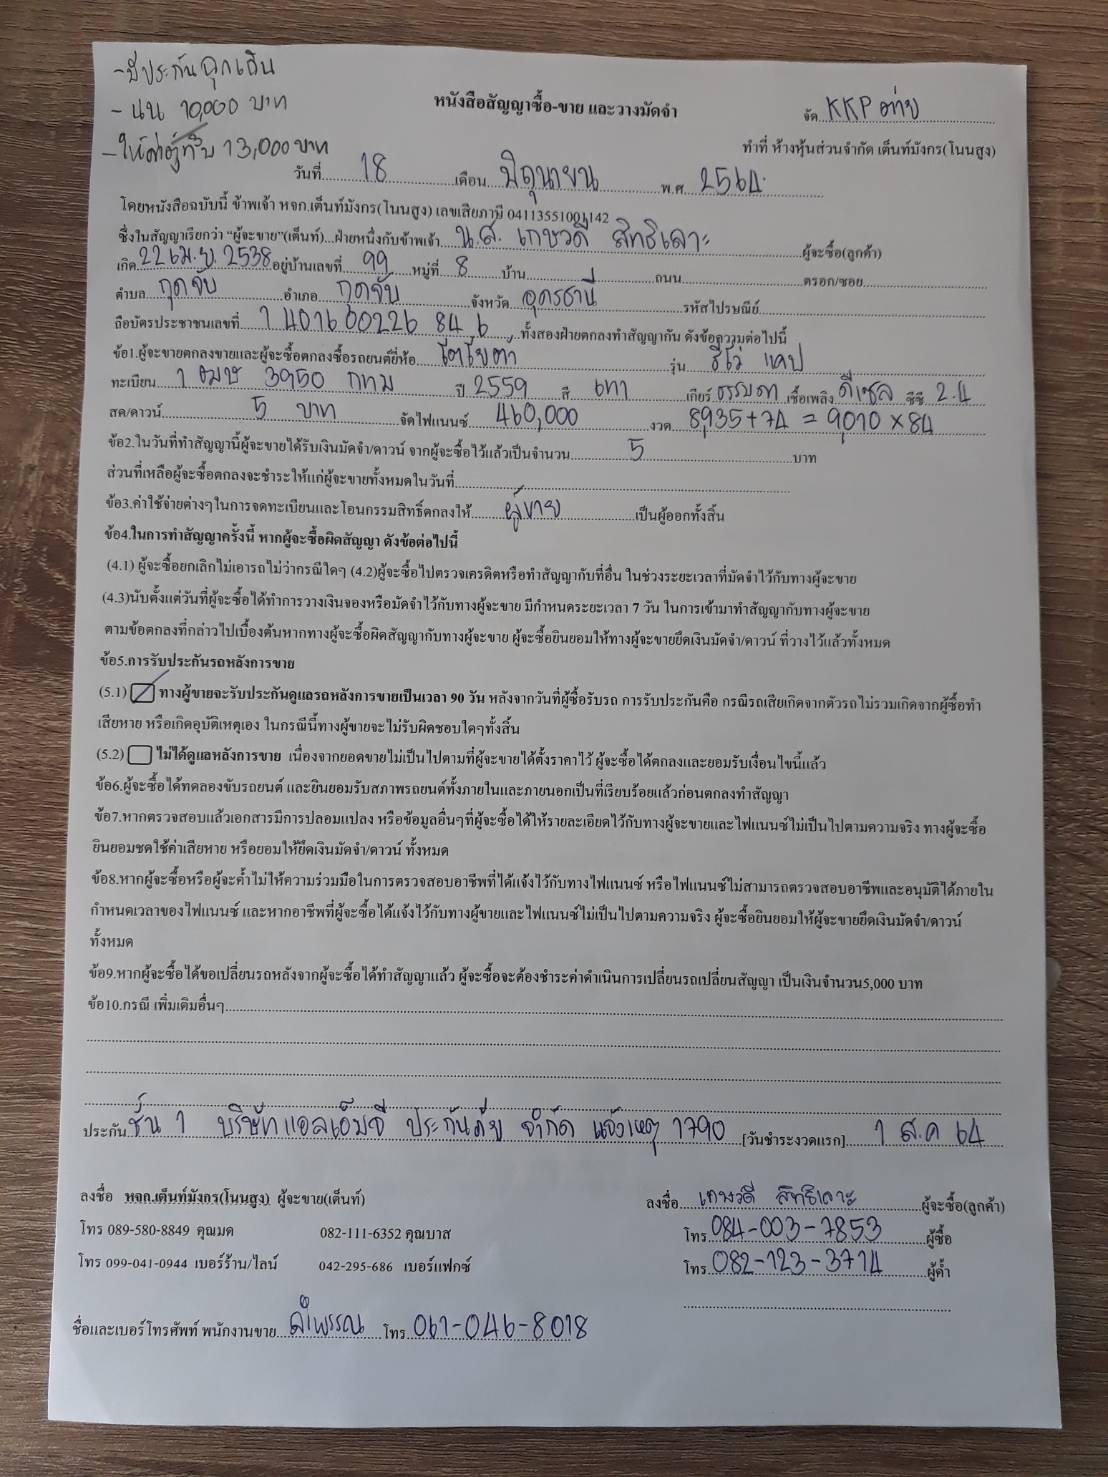 -มีประกันฉุกเฉิน
- นน 10,000 บาท
-ให้ค่าตู้ทึบ 13,000 บาท
หนังสือสัญญาซื้อ-ขาย และวางมัดจำ
จัด KKP ต่าย
ทำที่ ห้างหุ้นส่วนจำกัด เต็นท์มังกร(โนนสูง)
วันที่ 18 เดือน มิถุนายน พ.ศ. 2564
โดยหนังสือฉบับนี้ ข้าพเจ้า หจก.เต็นท์มังกร(โนนสูง) เลขเสียภาษี 04113551001142
ซึ่งในสัญญาเรียกว่า "ผู้จะขาย"(เต็นท์)...ฝ่ายหนึ่งกับข้าพเจ้า น.ส. เกษวดี สิทธิเลาะ ผู้จะซื้อ(ลูกค้า)
เกิด 22 เม.ย. 2538 อยู่บ้านเลขที่ 99 หมู่ที่ 8 บ้าน ถนน ตรอก/ซอย
ตำบล กุดจับ อำเภอ กุดจับ จังหวัด อุดรธานี รหัสไปรษณีย์
ถือบัตรประชาชนเลขที่ 1 401600226 84 6 ทั้งสองฝ่ายตกลงทำสัญญากัน ดังข้อความต่อไปนี้
ข้อ1.ผู้จะขายตกลงขายและผู้จะซื้อตกลงซื้อรถยนต์ยี่ห้อ โตโยต้า รุ่น รีโว่ แคป
ทะเบียน 1 ฒษ 3950 กทม ปี 2559 สี เทา เกียร์ ธรรมดา เชื้อเพลิง ดีเซล ซีซี 2.4
สด/ดาวน์ 5 บาท จัดไฟแนนซ์ 460,000 งวด 8,935+74 = 9,010 x 84
ข้อ2.ในวันที่ทำสัญญานี้ผู้จะขายได้รับเงินมัดจำ/ดาวน์ จากผู้จะซื้อไว้แล้วเป็นจำนวน 5 บาท
ส่วนที่เหลือผู้จะซื้อตกลงจะชำระให้แก่ผู้จะขายทั้งหมดในวันที่
ข้อ3.ค่าใช้จ่ายต่างๆในการจดทะเบียนและโอนกรรมสิทธิ์ตกลงให้ ผู้ขาย เป็นผู้ออกทั้งสิ้น
ข้อ4.ในการทำสัญญาครั้งนี้ หากผู้จะซื้อผิดสัญญา ดังข้อต่อไปนี้
(4.1) ผู้จะซื้อยกเลิกไม่เอารถไม่ว่ากรณีใดๆ (4.2)ผู้จะซื้อไปตรวจเครดิตหรือทำสัญญากับที่อื่น ในช่วงระยะเวลาที่มัดจำไว้กับทางผู้จะขาย
(4.3)นับตั้งแต่วันที่ผู้จะซื้อได้ทำการวางเงินจองหรือมัดจำไว้กับทางผู้จะขาย มีกำหนดระยะเวลา 7 วัน ในการเข้ามาทำสัญญากับทางผู้จะขาย
ตามข้อตกลงที่กล่าวไปเบื้องต้นหากทางผู้จะซื้อผิดสัญญากับทางผู้จะขาย ผู้จะซื้อยินยอมให้ทางผู้จะขายยึดเงินมัดจำ/ดาวน์ ที่วางไว้แล้วทั้งหมด
ข้อ5.การรับประกันรถหลังการขาย
(5.1) ทางผู้ขายจะรับประกันดูแลรถหลังการขายเป็นเวลา 90 วัน หลังจากวันที่ผู้ซื้อรับรถ การรับประกันคือ กรณีรถเสียเกิดจากตัวรถไม่รวมเกิดจากผู้ซื้อทำ
เสียหาย หรือเกิดอุบัติเหตุเอง ในกรณีนี้ทางผู้ขายจะไม่รับผิดชอบใดๆทั้งสิ้น
(5.2) ไม่ได้ดูแลหลังการขาย เนื่องจากยอดขายไม่เป็นไปตามที่ผู้จะขายได้ตั้งราคาไว้ ผู้จะซื้อได้ตกลงและยอมรับเงื่อนไขนี้แล้ว
ข้อ6.ผู้จะซื้อได้ทดลองขับรถยนต์ และยินยอมรับสภาพรถยนต์ทั้งภายในและภายนอกเป็นที่เรียบร้อยแล้วก่อนตกลงทำสัญญา
ข้อ7.หากตรวจสอบแล้วเอกสารมีการปลอมแปลง หรือข้อมูลอื่นๆที่ผู้จะซื้อได้ให้รายละเอียดไว้กับทางผู้จะขายและไฟแนนซ์ไม่เป็นไปตามความจริง ทางผู้จะซื้อ
ยินยอมชดใช้ค่าเสียหาย หรือยอมให้ยึดเงินมัดจำ/ดาวน์ ทั้งหมด
ข้อ8.หากผู้จะซื้อหรือผู้จะค้ำไม่ให้ความร่วมมือในการตรวจสอบอาชีพที่ได้แจ้งไว้กับทางไฟแนนซ์ หรือไฟแนนซ์ไม่สามารถตรวจสอบอาชีพและอนุมัติได้ภายใน
กำหนดเวลาของไฟแนนซ์ และหากอาชีพที่ผู้จะซื้อได้แจ้งไว้กับทางผู้ขายและไฟแนนซ์ไม่เป็นไปตามความจริง ผู้จะซื้อยินยอมให้ผู้จะขายยึดเงินมัดจำ/ดาวน์
ทั้งหมด
ข้อ9.หากผู้จะซื้อได้ขอเปลี่ยนรถหลังจากผู้จะซื้อได้ทำสัญญาแล้ว ผู้จะซื้อจะต้องชำระค่าดำเนินการเปลี่ยนรถเปลี่ยนสัญญา เป็นเงินจำนวน5,000 บาท
ข้อ10.กรณี เพิ่มเติมอื่นๆ
ประกัน ชั้น 1 บริษัท แอลเอ็มจี ประกันภัย จำกัด แจ้งเหตุ 1790 [วันชำระงวดแรก] 1 ส.ค 64
ลงชื่อ หจก.เต็นท์มังกร(โนนสูง) ผู้จะขาย(เต็นท์) ลงชื่อ เกษวดี สิทธิเลาะ ผู้จะซื้อ(ลูกค้า)
โทร 089-580-8849 คุณมด 082-111-6352 คุณบาส โทร 084-003-7853 ผู้ซื้อ
โทร 099-041-0944 เบอร์ร้าน/ไลน์ 042-295-686 เบอร์แฟกซ์ โทร 082-123-3714 ผู้ค้ำ
ชื่อและเบอร์โทรศัพท์ พนักงานขาย ลำพรรณ โทร 061-046-8018